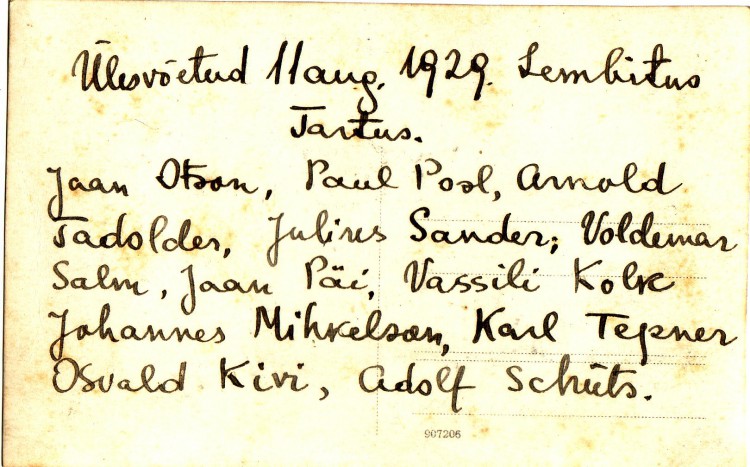 Ülesvõetud 11 aug. 1929. Lembitus
Tartus.
Jaan Otson, Paul Pool, Arnold
Tadolder, Julius Sander; Voldemar
Salm, Jaan Päi, Vassili Kolk
Johannes Mihkelson, Karl Tepner
Osvald Kivi, Adolf Schüts.
907206